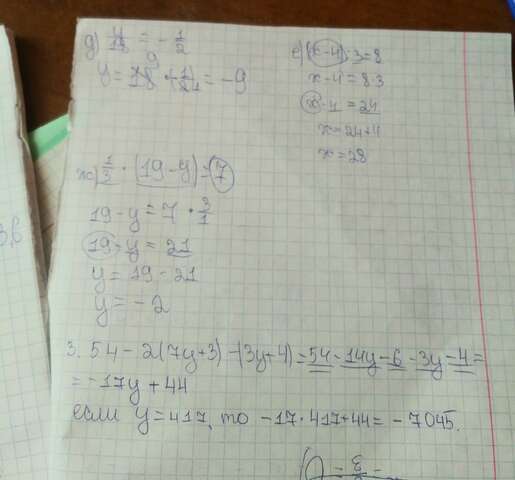 д) y/18 = - 1/2
y = 18 · (-1/2) = -9
9
1
е) (x-4) : 3 = 8
x - 4 = 8·3
x - 4 = 24
x = 24+4
x = 28
ж) 1/3 · (19 - y) = 7
19 - y = 7 · 3/1
19 - y = 21
y = 19 - 21
y = - 2
3. 54 - 2(7y+3) - (3y+4) = 54 - 14y - 6 - 3y - 4 =
= -17y + 44
если y = 417, то -17·417+44 = - 7045.